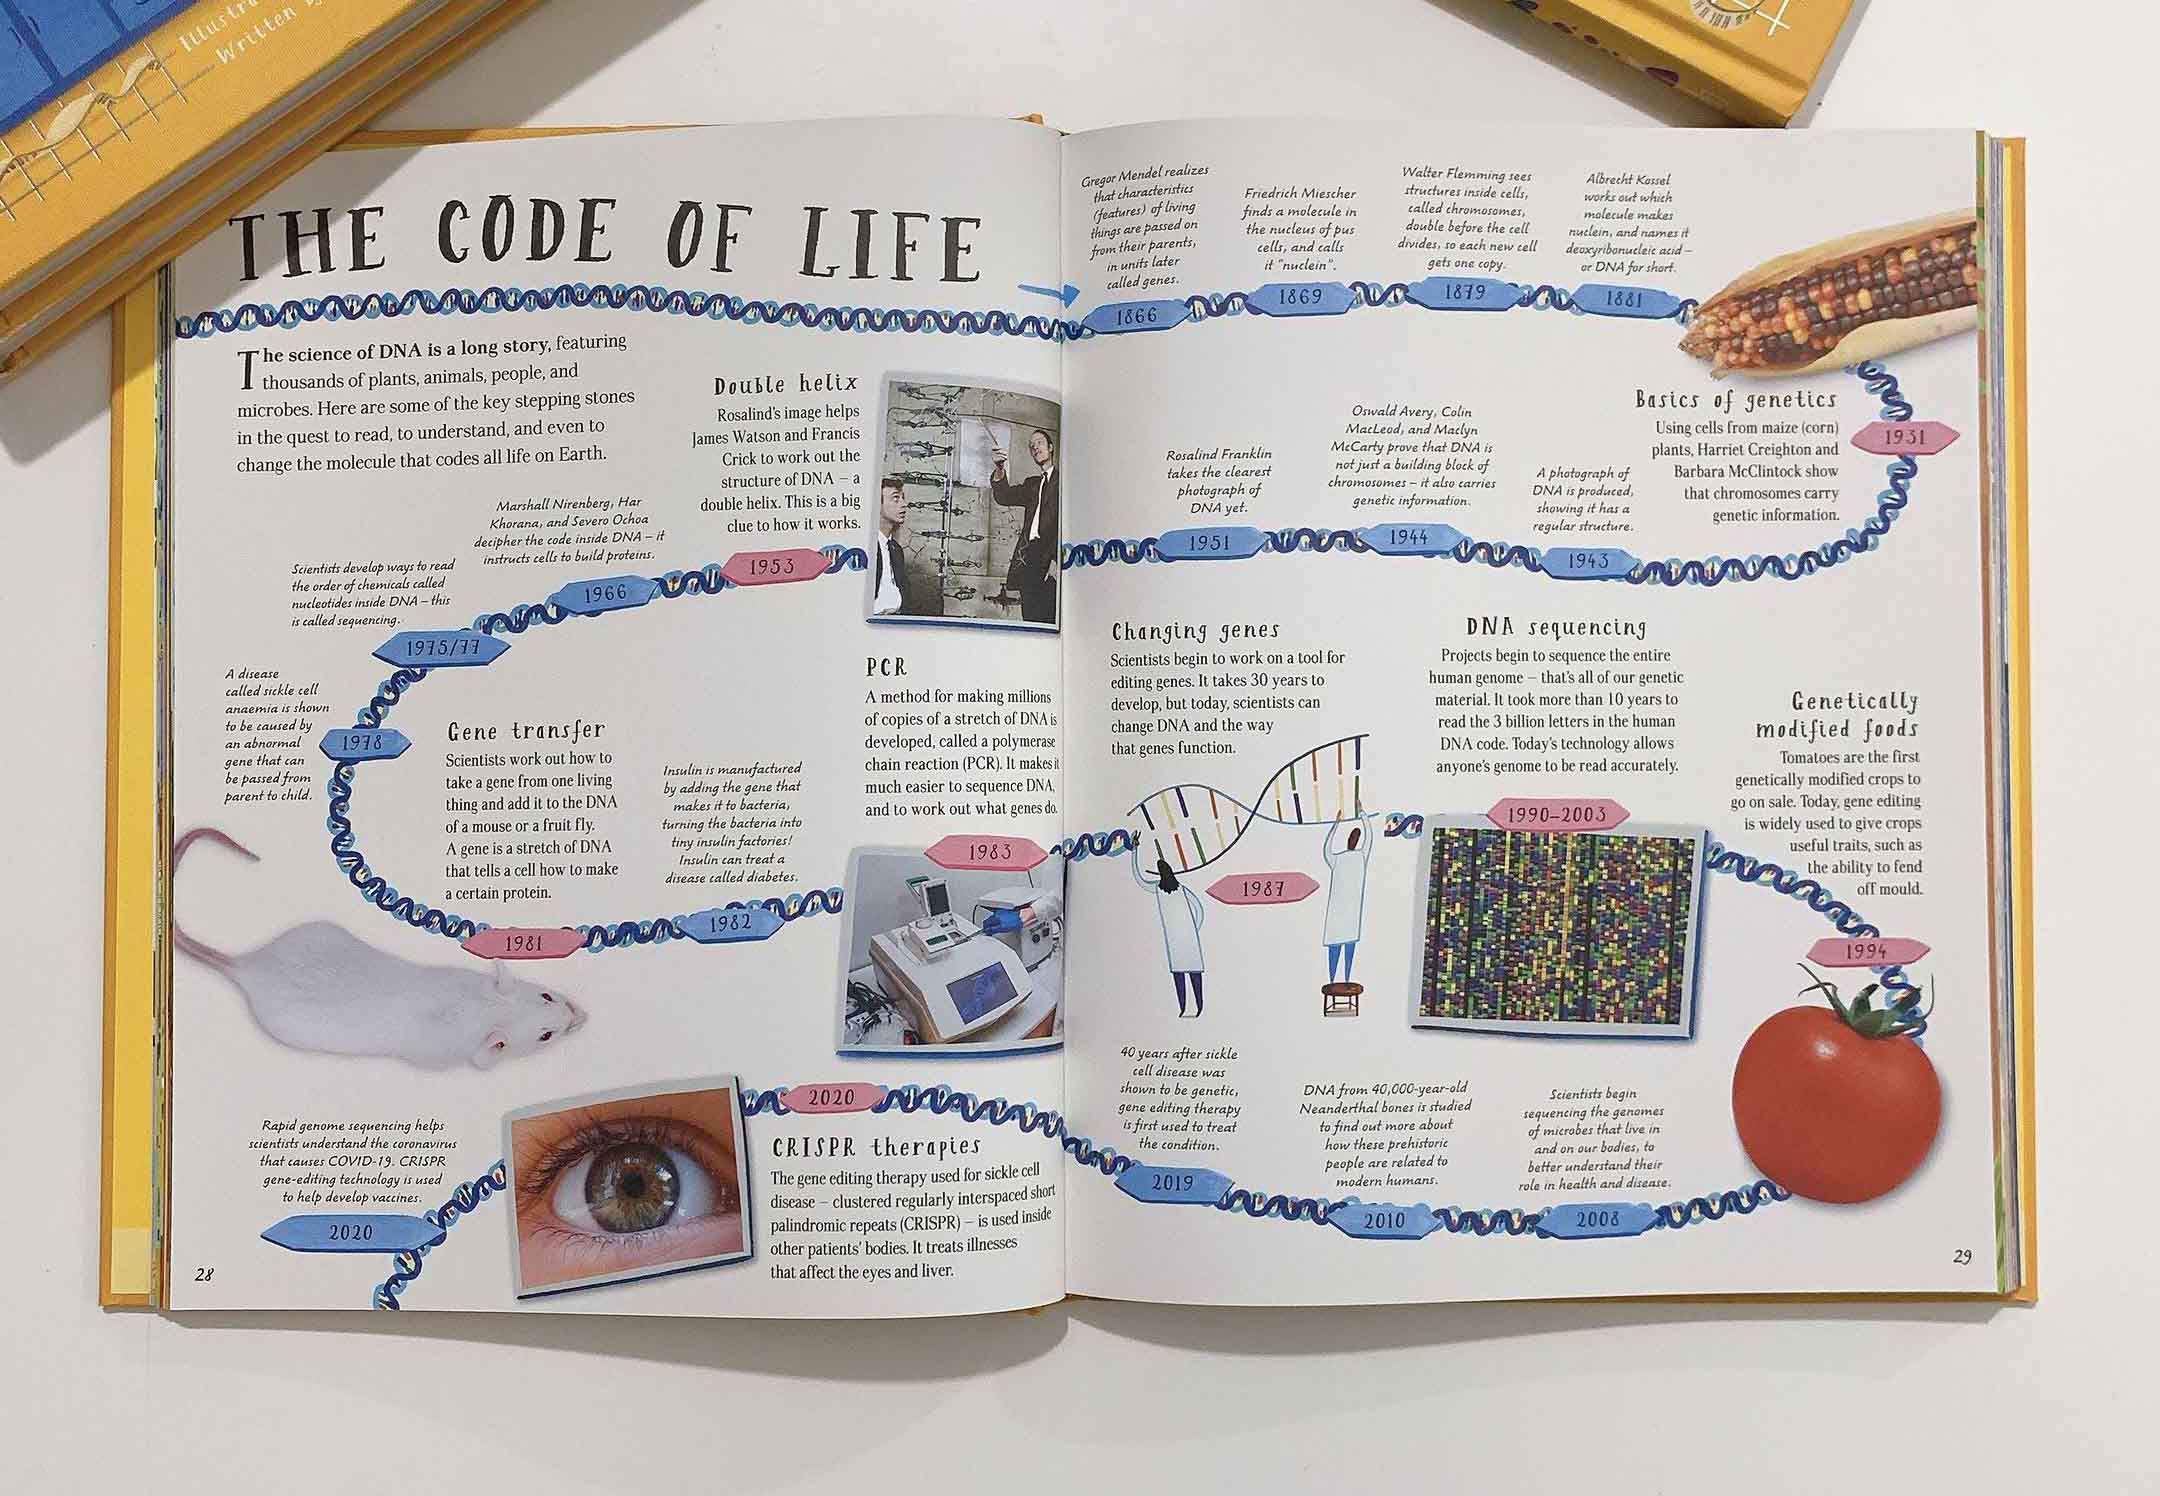 Illustra
Written b
THE CODE OF LIFE
The science of DNA is a long story, featuring
thousands of plants, animals, people, and
microbes. Here are some of the key stepping stones
in the quest to read, to understand, and even to
change the molecule that codes all life on Earth.
Gregor Mendel realizes
that characteristics
(features) of living
things are passed on
from their parents,
in units later
called genes.
1866
Friedrich Miescher
finds a molecule in
the nucleus of pus
cells, and calls
it "nuclein".
1869
Walter Flemming sees
structures inside cells,
called chromosomes,
double before the cell
divides, so each new cell
gets one copy.
1879
Albrecht Kossel
works out which
molecule makes
nuclein, and names it
deoxyribonucleic acid –
or DNA for short.
1881
Basics of genetics
Using cells from maize (corn)
plants, Harriet Creighton and
Barbara McClintock show
that chromosomes carry
genetic information.
1931
A photograph of
DNA is produced,
showing it has a
regular structure.
1943
Oswald Avery, Colin
MacLeod, and Maclyn
McCarty prove that DNA is
not just a building block of
chromosomes – it also carries
genetic information.
1944
Rosalind Franklin
takes the clearest
photograph of
DNA yet.
1951
Double helix
Rosalind's image helps
James Watson and Francis
Crick to work out the
structure of DNA – a
double helix. This is a big
clue to how it works.
1953
Marshall Nirenberg, Har
Khorana, and Severo Ochoa
decipher the code inside DNA – it
instructs cells to build proteins.
1966
Scientists develop ways to read
the order of chemicals called
nucleotides inside DNA – this
is called sequencing.
1975/77
A disease
called sickle cell
anaemia is shown
to be caused by
an abnormal
gene that can
be passed from
parent to child.
1978
Gene transfer
Scientists work out how to
take a gene from one living
thing and add it to the DNA
of a mouse or a fruit fly.
A gene is a stretch of DNA
that tells a cell how to make
a certain protein.
1981
Insulin is manufactured
by adding the gene that
makes it to bacteria,
turning the bacteria into
tiny insulin factories!
Insulin can treat a
disease called diabetes.
1982
PCR
A method for making millions
of copies of a stretch of DNA is
developed, called a polymerase
chain reaction (PCR). It makes it
much easier to sequence DNA,
and to work out what genes do.
1983
Changing genes
Scientists begin to work on a tool for
editing genes. It takes 30 years to
develop, but today, scientists can
change DNA and the way
that genes function.
1987
DNA sequencing
Projects begin to sequence the entire
human genome – that's all of our genetic
material. It took more than 10 years to
read the 3 billion letters in the human
DNA code. Today's technology allows
anyone's genome to be read accurately.
1990–2003
Genetically
modified foods
Tomatoes are the first
genetically modified crops to
go on sale. Today, gene editing
is widely used to give crops
useful traits, such as
the ability to fend
off mould.
1994
Scientists begin
sequencing the genomes
of microbes that live in
and on our bodies, to
better understand their
role in health and disease.
2008
DNA from 40,000-year-old
Neanderthal bones is studied
to find out more about
how these prehistoric
people are related to
modern humans.
2010
40 years after sickle
cell disease was
shown to be genetic,
gene editing therapy
is first used to treat
the condition.
2019
2020
CRISPR therapies
The gene editing therapy used for sickle cell
disease – clustered regularly interspaced short
palindromic repeats (CRISPR) – is used inside
other patients' bodies. It treats illnesses
that affect the eyes and liver.
Rapid genome sequencing helps
scientists understand the coronavirus
that causes COVID-19. CRISPR
gene-editing technology is used
to help develop vaccines.
2020
28
29